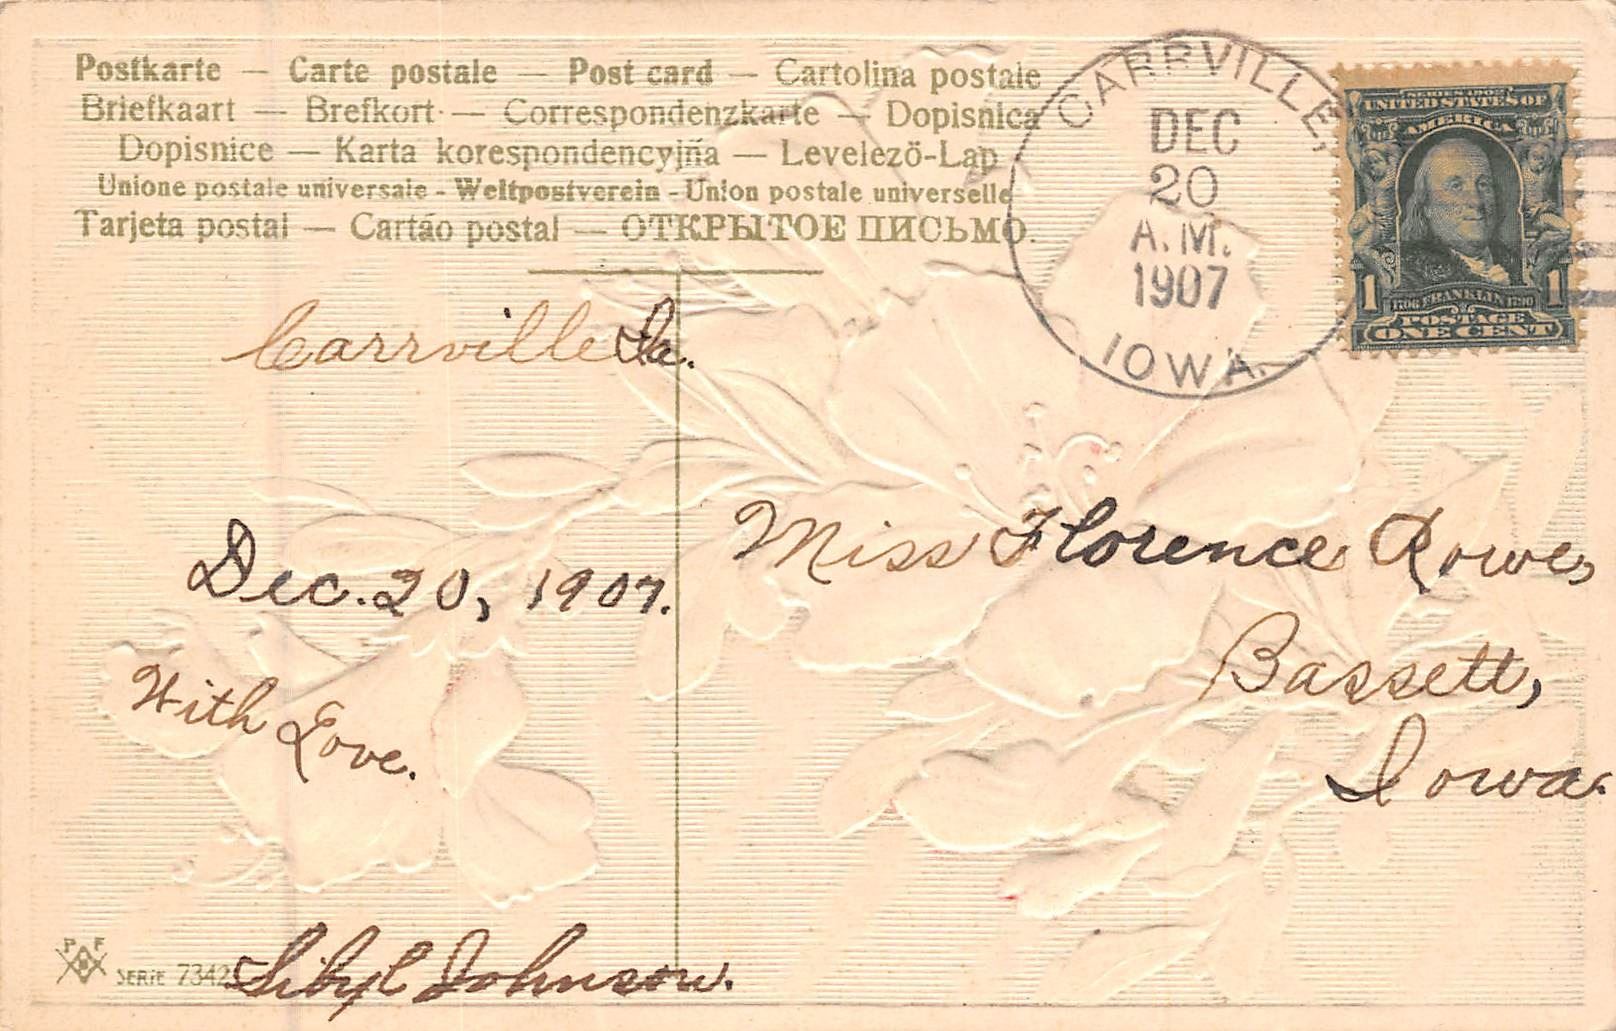 Postkarte — Carte postale — Post card — Cartolina postale
Briefkaart — Brefkort — Correspondenzkarte — Dopisnica
Dopisnice — Karta korespondencyjna — Levelező-Lap
Unione postale universale - Weltpostverein - Union postale universelle
Tarjeta postal — Cartáo postal — ОТКРЫТОЕ ПИСЬМО.
CARRVILLE,
DEC
20
A.M.
1907
IOWA.
SERIES 1902
UNITED STATES OF
AMERICA
1706 FRANKLIN 1790
1 1
POSTAGE
ONE CENT
Carrville Ia.
Dec. 20, 1907.
With Love.
Sibyl Johnson.
Miss Florence Rowe,
Bassett,
Iowa.
P F
SERIE 7342